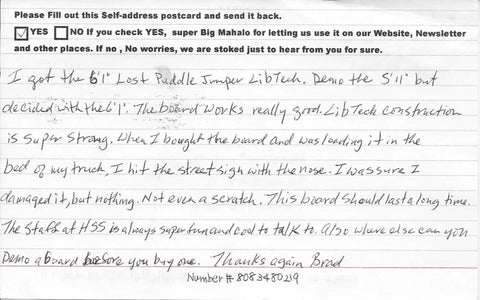 Please Fill out this Self-address postcard and send it back.
YES NO If you check YES, super Big Mahalo for letting us use it on our Website, Newsletter
and other places. If no , No worries, we are stoked just to hear from you for sure.
I got the 6'1" Lost Puddle Jumper LibTech. Demo the 5'11" but
decided with the 6'1". The board works really good. LibTech construction
is super strong. When I bought the board and was loading it in the
bed of my truck, I hit the street sign with the nose. I was sure I
damaged it, but nothing. Not even a scratch. This board should last a long time.
The staff at HSS is always super fun and cool to talk to. Also where else can you
Demo a board before you buy one. Thanks again Brad
Number # 8083480219